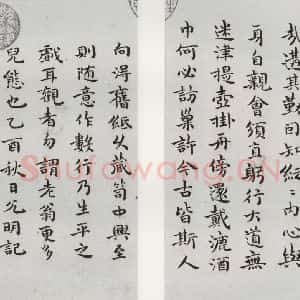 哉其可知內心與
耳自觀會須直躬行大道無
迷津提壺掛還戴漉酒
巾何必訪巢許今古皆斯人
向得舊紙久藏笥中興至
則隨意作數行乃生平之
戲耳觀者勿謂老翁更多
兒態也乙酉秋日光明記
Shufawang.CN